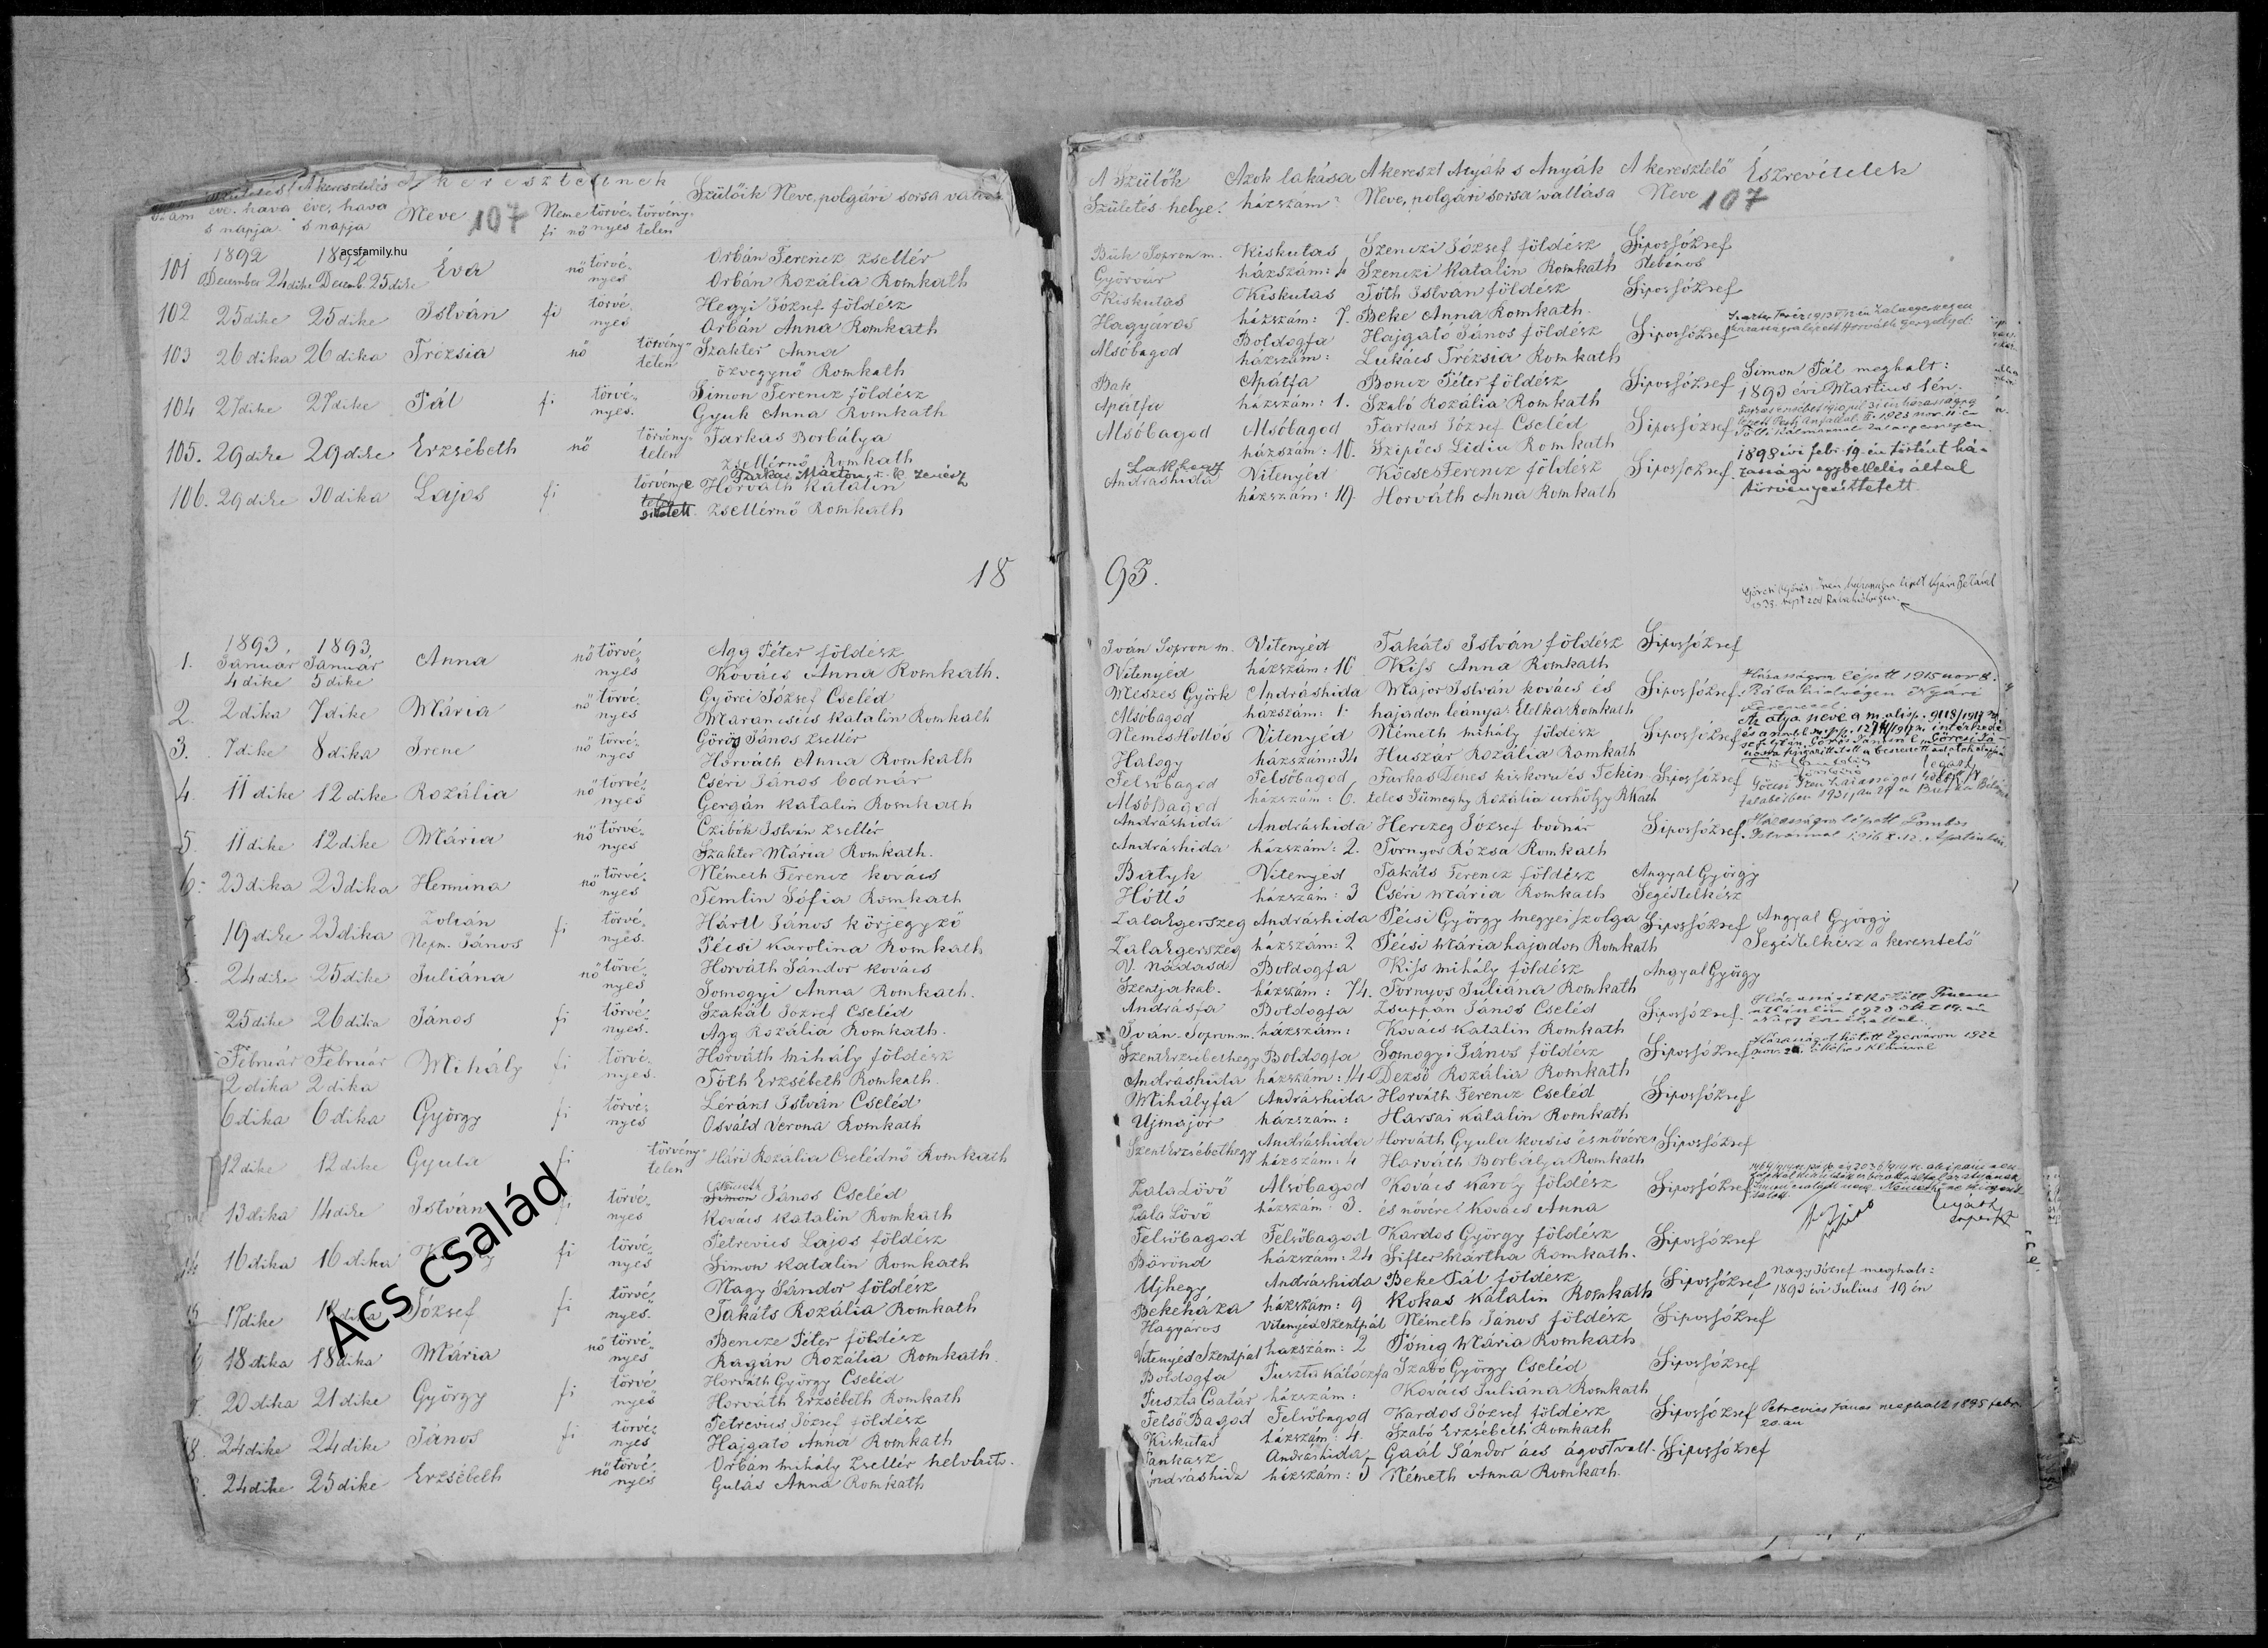 Szám
éve, hava éve, hava
s napja s napja
A keresztelés
A kereszteltnek
Neve 107
Neme törvé- törvény-
fi nő nyes telen
Szülőik Neve, polgári sorsa
acsfamily.hu
1892 1892
101 December 24dike Decemb. 25dike Éva nő törvé-
nyes
Orbán Ferencz zsellér
Orbán Rozália Romkath
102 25dike 25dike István fi törvé-
nyes
Hegyi József földész
Orbán Anna Romkath
103 26dika 26dika Trézsia nő törvény-
telen
Szakter Anna
özvegynő Romkath
104 27dike 27dike Pál fi törvé-
nyes.
Simon Ferencz földész
Gyuk Anna Romkath
105. 29dike 29dike Erzsébeth nő törvény-
telen
Farkas Borbálya
zsellérnő Romkath
106. 29dike 30dika Lajos fi
Farkas Márton r. k. zenész
Horváth Katalin
zsellérnő Romkath
18
1893. 1893.
Január Január
1. 4dike 5dike Anna nő törvé-
nyes
Agg Péter földész
Kovács Anna Romkath.
2. 2dika 7dike Mária nő törvé-
nyes
Györei József Cseléd
Marancsics Katalin Romkath
3. 7dike 8dika Irene nő törvé-
nyes
Görög János zsellér
Horváth Anna Romkath
4. 11dike 12dike Rozália nő törvé-
nyes
Cséri János bodnár
Gergán Katalin Romkath
5. 11dike 12dike Mária nő törvé-
nyes
Czibók István zsellér
Szakter Mária Romkath.
6. 23dika 23dika Hermina nő törvé-
nyes
Németh Ferencz kovács
Temlin Sófia Romkath
7 19dike 23dika Zoltán
Nepm. János fi törvé-
nyes.
Hártl János körjegyző
Pécsi Karolina Romkath
8. 24dike 25dike Juliána nő törvé-
nyes
Horváth Sándor kovács
Somogyi Anna Romkath.
25dike 26dika János fi törvé-
nyes.
Szakál József Cseléd
Agg Rozália Romkath.
Február Február
2dika 2dika Mihály fi törvé-
nyes.
Horváth Mihály földész
Tóth Erzsébeth Romkath.
6dika 6dika György fi törvé-
nyes
Léránt István Cseléd
Osváld Verona Romkath
12dike 12dike Gyula fi törvény-
telen
Hári Rozália Cselédnő Romkath
13dika 14dike István fi törvé-
nyes
Németh
Simon János Cseléd
Kovács Katalin Romkath
14 16dika 16dika fi törvé-
nyes
Petrevics Lajos földész
Simon Katalin Romkath
15 17dike 18dika József fi törvé-
nyes.
Nagy Sándor földész
Takáts Rozália Romkath
6 18dika 18dika Mária nő törvé-
nyes
Bencze Péter földész
Ragán Rozália Romkath.
7. 20dika 21dike György fi törvé-
nyes
Horváth György Cseléd
Horváth Erzsébeth Romkath
18. 24dike 24dike János fi törvé-
nyes
Petrevics József földész
Hajgató Anna Romkath
24dike 25dike Erzsébeth nő törvé-
nyes
Orbán Mihály zsellér helv. hit.
Gulás Anna Romkath
Acs család
A Szülők Azok lakása A kereszt Atyák s Anyák A keresztelő Észrevételek
Születés helye. házszám Neve, polgári sorsa vallása Neve 107
Bük Sopron m. Kiskutas Szenczi József földész Sipos József
Györvár házszám: 4 Szenczi Katalin Romkath Plébános
Kiskutas Kiskutas Tóth István földész Sipos József
Hagyáros házszám: 7. Beke Anna Romkath.
Alsóbagod Boldogfa Hajgató János földész Sipos József
házszám: Lukács Trézsia Romkath
Bak Apátfa Boncz Péter földész Sipos József
Apátfa házszám: 1. Szabó Rozália Romkath
Simon Pál meghalt:
1893 évi Martius 1én.
Alsóbagod Alsóbagod Farkas József Cseléd Sipos József
házszám: 10. Szipőcs Lidia Romkath
Lakhegy
Andráshida Vitenyéd Kőcse Ferencz földész Sipos József.
házszám: 19. Horváth Anna Romkath
1898 évi febr. 19-én történt há-
zassági egybekelés által
törvényesíttetett.
93.
Iván Sopron m. Vitenyéd Takáts István földész Sipos József
Vitenyéd házszám: 16 Kiss Anna Romkath
Meszes Györk Andráshida Major István kovács és Sipos József
Alsóbagod házszám: 1. hajadon leánya Etelka Romkath
Házasságra lépett 1915 nov 8.
Nemes Hollós Vitenyéd Németh Mihály földész Sipos József
Halogy házszám: 34 Huszár Rozália Romkath
Felsőbagod Felsőbagod Farkas Dénes kiskorú és Tekin- Sipos József
Alsóbagod házszám: 6. tetes Sümeghy Rozália urhölgy RKath
Andráshida Andráshida Herczeg József bodnár Sipos József.
Andráshida házszám: 2. Tornyos Rózsa Romkath
Batyk Vitenyéd Takáts Ferencz földész Angyal György
Hottó házszám: 3 Cséri Mária Romkath Segédlelkész
ZalaEgerszeg Andráshida Pécsi György megyei szolga Sipos József
ZalaEgerszeg házszám: 2 Pécsi Mária hajadon Romkath
Angyal György
Segédlelkész a keresztelő
V. Nádasd Boldogfa Kiss Mihály földész Angyal György
Szentjakab. házszám: 74. Tornyos Juliána Romkath
Andrásfa Boldogfa Zsuppán János Cseléd Sipos József.
Iván. Sopron m. házszám: Kovács Katalin Romkath
SzentErzsébethegy Boldogfa Somogyi János földész Sipos József
Andráshida házszám: 14. Dezső Rozália Romkath
Mihályfa Andráshida Horváth Ferencz Cseléd Sipos József
Ujmajor házszám: Harsai Katalin Romkath
SzentErzsébethegy Andráshida Horváth Gyula kocsis és nővére Sipos József
házszám: 4 Horváth Borbálya Romkath
ZalaLövő Alsóbagod Kovács Károly földész Sipos József
Zala Lövő házszám: 3. és nővére Kovács Anna
Felsőbagod Felsőbagod Kardos György földész Sipos József
Böröund házszám: 24 Sifter Mártha Romkath.
Ujhegy Andráshida Beke Pál földész Sipos József
Bekeháza házszám: 9 Kokas Katalin Romkath
Nagy József meghalt:
1893 évi Július 19én
Hagyáros Vitenyéd Szentpál Németh János földész Sipos József
Vitenyéd Szentpál házszám: 2 Pónig Mária Romkath
Boldogfa Puszta Kálóczfa Szabó György Cseléd Sipos József
Puszta Csatár házszám: Kovács Juliána Romkath
Felső Bagod Felsőbagod Kardos József földész Sipos József
Kiskutas házszám: 4. Szabó Erzsébeth Romkath
Petrevics János meghalt 1895 febr.
20.án
Pankasz Andráshida Gaál Sándor ács ágost vall. Sipos József
Andráshida házszám: 5 Németh Anna Romkath.